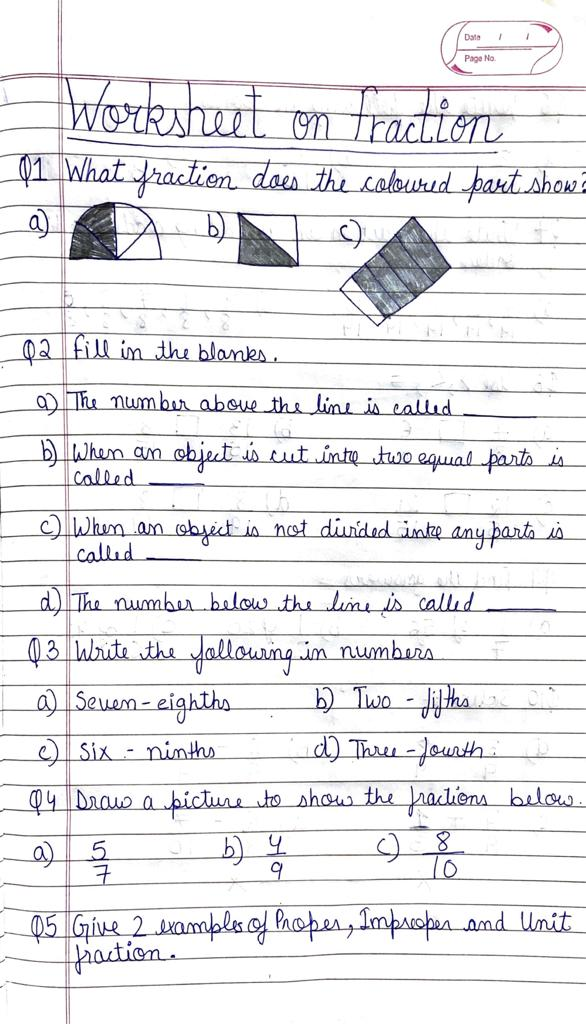 Date / /
Page No.
Worksheet on fraction
Q1 What fraction does the coloured part show?
a) b) c)
Q2 fill in the blanks.
a) The number above the line is called ____
b) When an object is cut into two equal parts is
called ____
c) When an object is not divided into any parts is
called ____
d) The number below the line is called ____
Q3 Write the following in numbers
a) Seven-eighths b) Two - fifths
c) Six - ninths d) Three - fourth.
Q4 Draw a picture to show the fractions below.
a) 5/7 b) 4/9 c) 8/10
Q5 Give 2 examples of Proper, Improper and Unit
fraction.